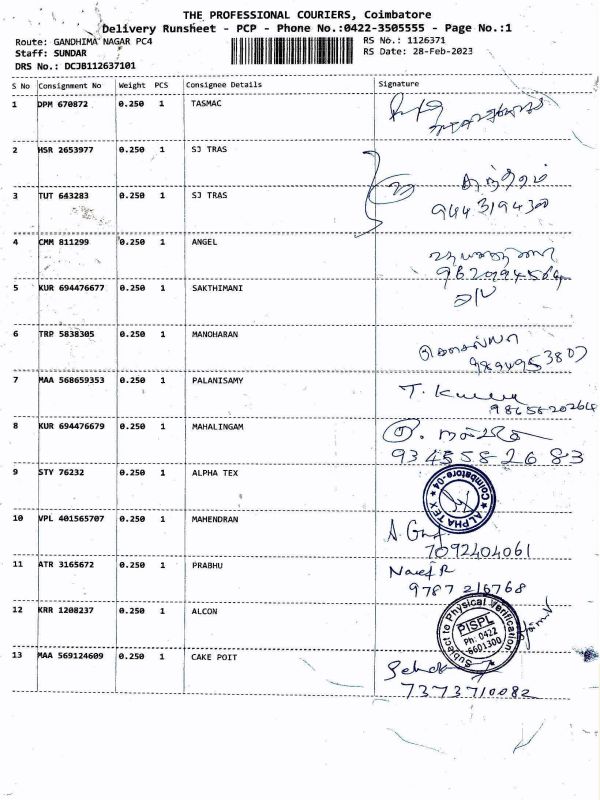 THE PROFESSIONAL COURIERS, Coimbatore
Delivery Runsheet - PCP - Phone No.:0422-3505555 - Page No.:1
Route: GANDHIMA NAGAR PC4
RS No.: 1126371
Staff: SUNDAR
RS Date: 28-Feb-2023
DRS No.: DCJB112637101
S No Consignment No Weight PCS Consignee Details Signature
1 DPM 670872 0.250 1 TASMAC
2 HSR 2653977 0.250 1 SJ TRAS
3 TUT 643283 0.250 1 SJ TRAS
4 CMM 811299 0.250 1 ANGEL
5 KUR 694476677 0.250 1 SAKTHIMANI
6 TRP 5838305 0.250 1 MANOHARAN
7 MAA 568659353 0.250 1 PALANISAMY
8 KUR 694476679 0.250 1 MAHALINGAM
9345582683
9 STY 76232 0.250 1 ALPHA TEX
ALPHA TEX ★ Coimbatore-04 ★
10 VPL 401565707 0.250 1 MAHENDRAN
7092404061
11 ATR 3165672 0.250 1 PRABHU
9787216768
12 KRR 1208237 0.250 1 ALCON
Subject to Physical Verification
PISPL
Ph: 0422
-6601300
13 MAA 569124609 0.250 1 CAKE POIT
7373710082